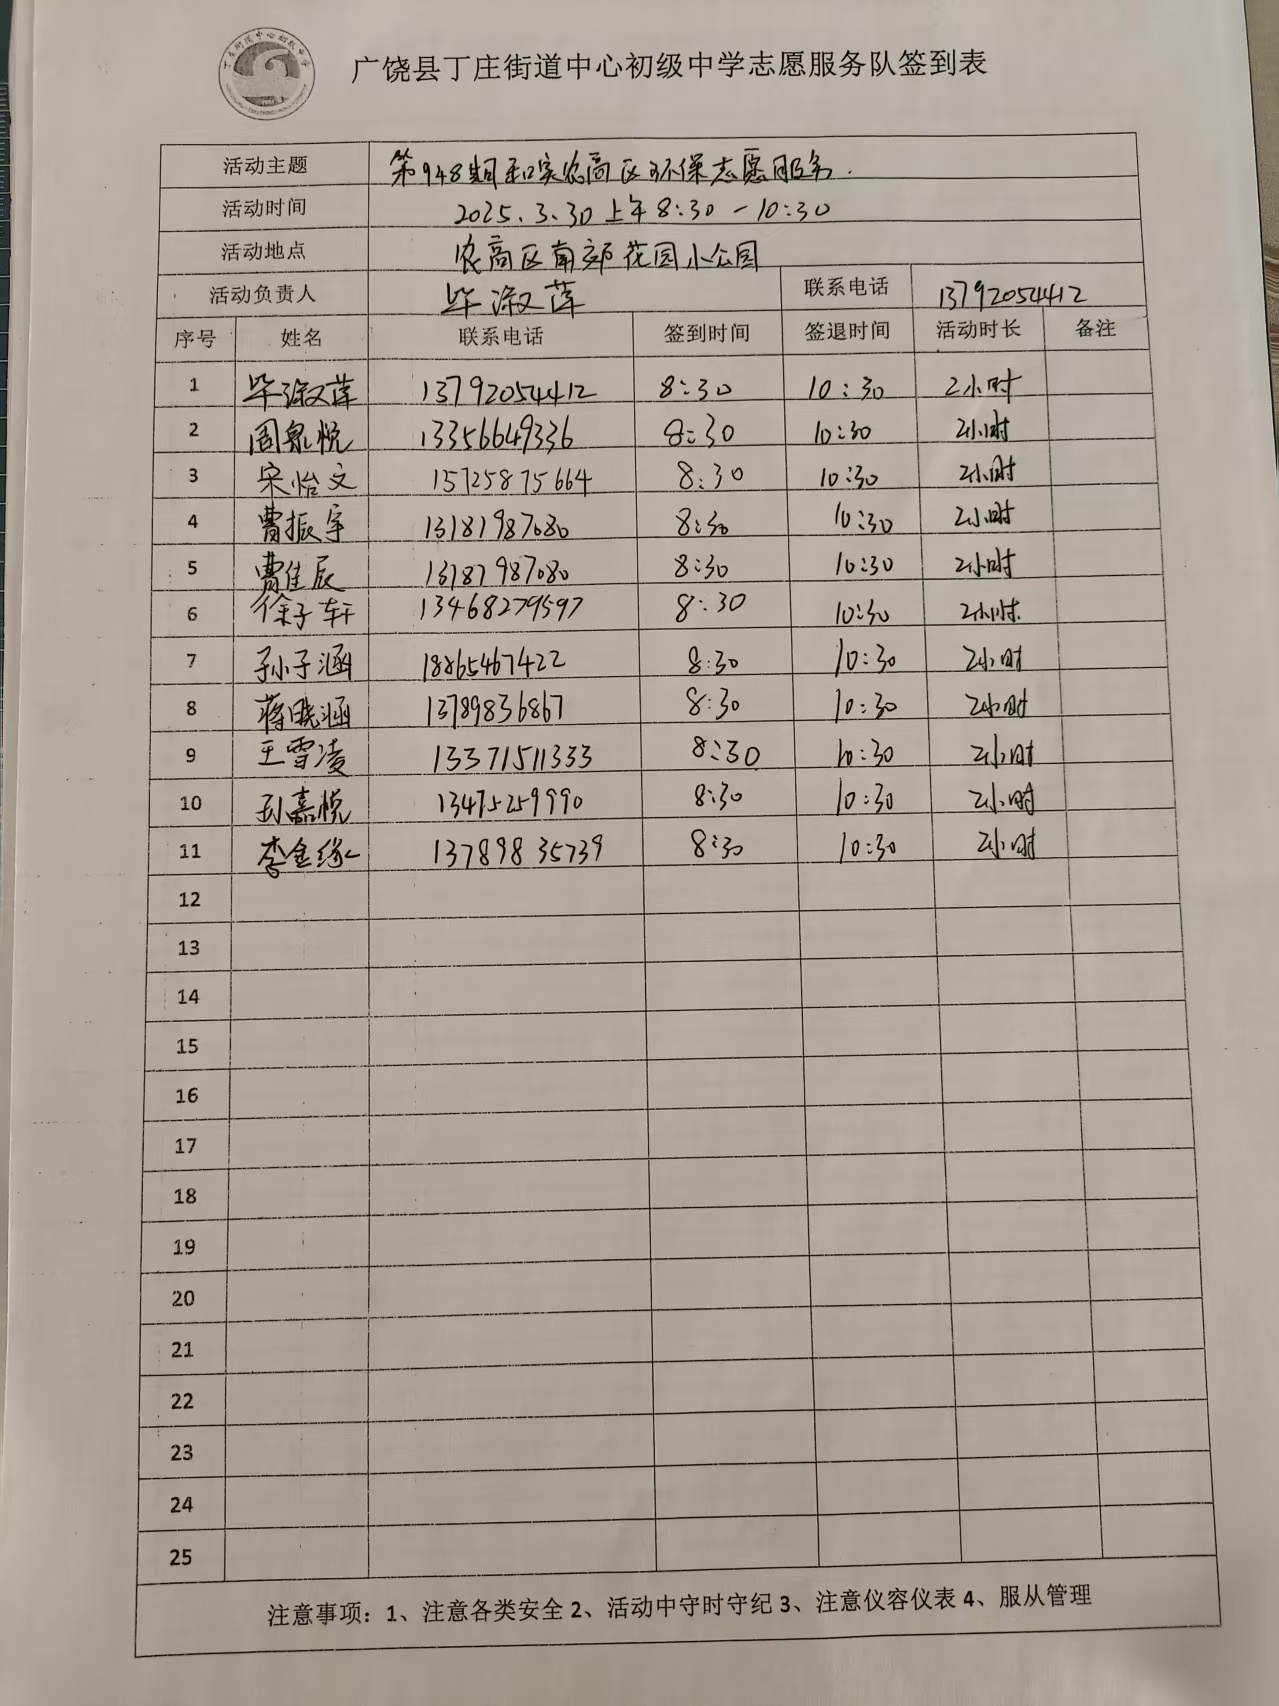 广饶县丁庄街道中心初级中学志愿服务队签到表
活动主题 第948期和实农高区环保志愿服务.
活动时间 2025.3.30上午8:30-10:30
活动地点 农高区南郊花园小公园
活动负责人 毕淑莲 联系电话 13792054412
序号 姓名 联系电话 签到时间 签退时间 活动时长 备注
1 毕淑莲 13792054412 8:30 10:30 2小时
2 周泉悦 13356649336 8:30 10:30 2小时
3 宋怡文 15725875664 8:30 10:30 2小时
4 曹振宇 13181987080 8:30 10:30 2小时
5 曹佳辰 13181987080 8:30 10:30 2小时
6 徐子轩 13468279597 8:30 10:30 2小时.
7 孙子涵 18865467422 8:30 10:30 2小时
8 蒋晓涵 13789836867 8:30 10:30 2小时
9 王雪凌 13371511333 8:30 10:30 2小时
10 孙嘉悦 13475259990 8:30 10:30 2小时
11 李金缘 13789835739 8:30 10:30 2小时
12
13
14
15
16
17
18
19
20
21
22
23
24
25
注意事项：1、注意各类安全 2、活动中守时守纪 3、注意仪容仪表 4、服从管理